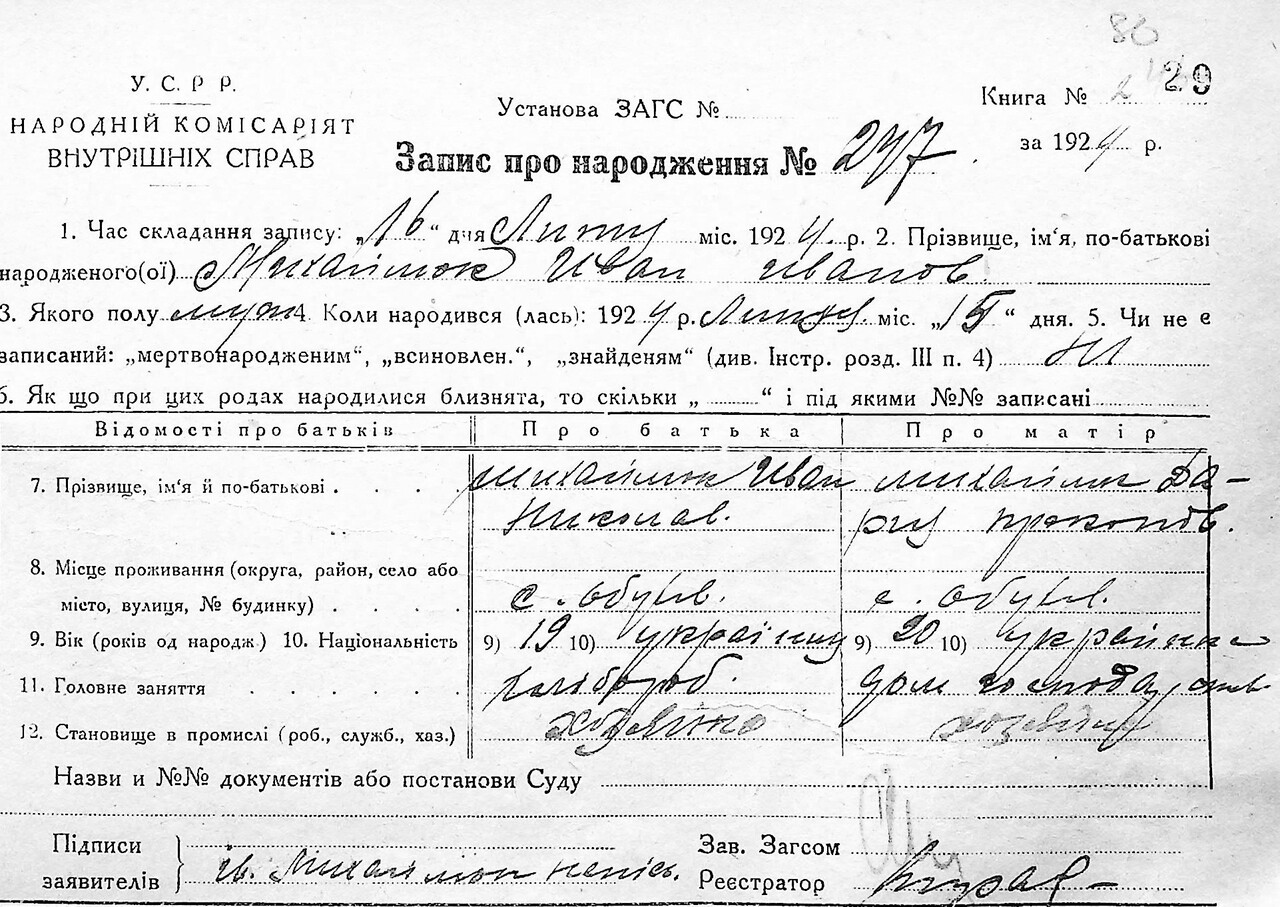 86
У. С. Р Р.
29
Книга № 2
Установа ЗАГС №
НАРОДНІЙ КОМІСАРІЯТ
за 1924 р.
ВНУТРІШНІХ СПРАВ
Запис про народження № 247
1. Час складання запису: „16“ дня Люту міс. 1924 р. 2. Прізвище, ім'я, по-батькові
народженого(ої) Михайлюк Иван Иванов.
3. Якого полу муж 4. Коли народився (лась): 1924 р. міс. „15“ дня. 5. Чи не є
записаний: „мертвонародженим“, „всиновлен.“, „знайденям“ (див. Інстр. розд. III п. 4) Ні
6. Як що при цих родах народилися близнята, то скільки „ “ і під якими №№ записані
Відомості про батьків Про батька Про матір
7. Прізвище, ім'я й по-батькові . . . михайлюк Иван михайлюк Да-
Николав. рия прокопов.
8. Місце проживання (округа, район, село або
місто, вулиця, № будинку) . . . . с. обухів. с. обухів.
9. Вік (років од народж.) 10. Національність 9) 19 10) українець 9) 20 10) українка
11. Головне заняття . . . . . . хлібороб. дом господарств
12. Становище в промислі (роб., служб., хаз.)
Назви и №№ документів або постанови Суду
Підписи
Зав. Загсом
заявителів Ів. Михайлюк непись. Реєстратор